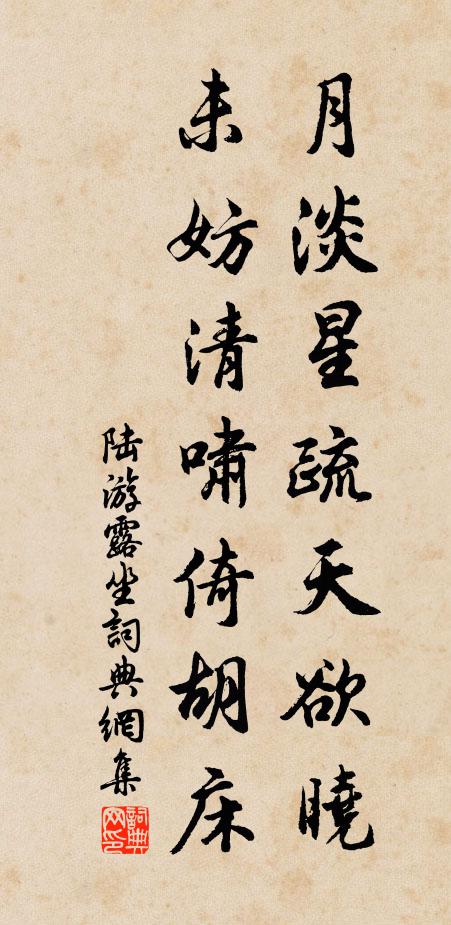 月淡星疏天欲曉
未妨清嘯倚胡床
陆游露坐詞典網集
詞典网印